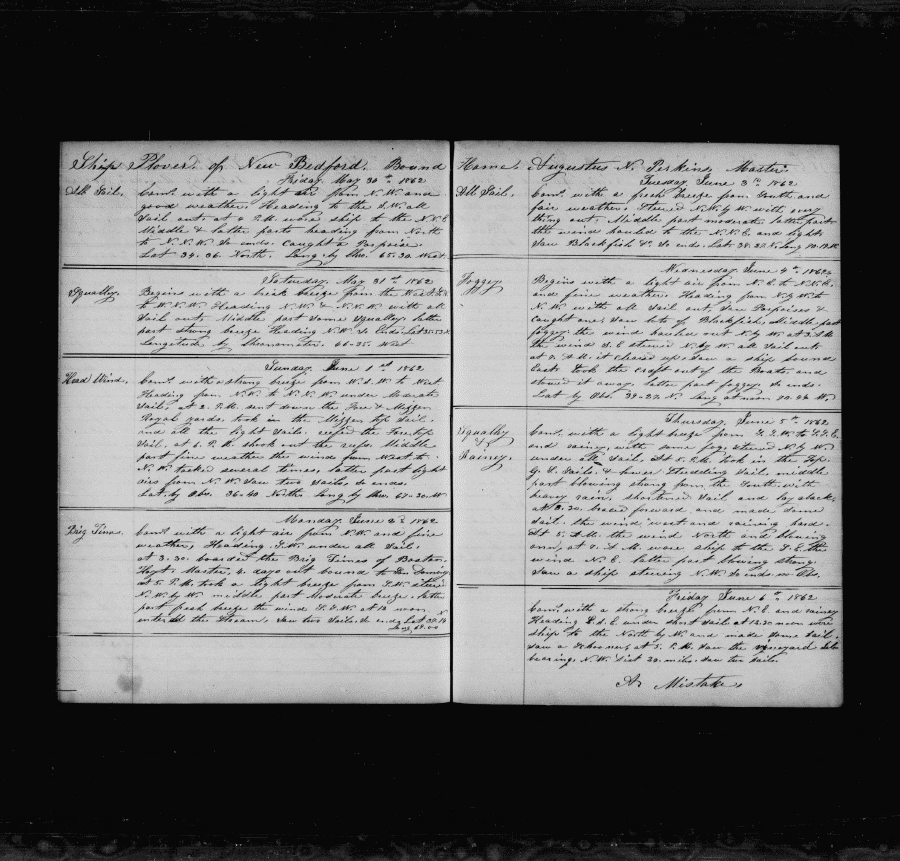 Ship Plover. of New Bedford. Bound
Friday. May 30th 1862
All Sail.
Coms. with a light air from N.W. and
good weather. Heading to the S.W. all
Sail out. at 4 P.M. wore ship to the N.N.E
Middle & latter parts heading from North
to N.N.W. So ends. Caught a Porpoise.
Lat 34.36 North. Long by Chro. 65.30 West
Saturday. May 31st 1862
Squally.
Begins with a breeze from the West
W.N.W. Heading N.W. & N.N.W. with all
Sail out. Middle part Some Squally. latter
part strong breeze Heading N.W. So Ends. Lat 35.53 N
Longitude by Chronometer. 66-35. West
Sunday. June 1st 1862
Head Wind.
Coms. with a strong breeze from W.S.W. to West
Heading from N.W. to N.N.W. under Moderate
Sail, at 2. P.M. sent down the Fore & Mizzen
Royal yards. took in the Mizzen top Sail
and all the light Sails. reefed the Foretop
Sail. at 6. P.M. shook out the reefs. Middle
part fine weather the wind from West to
N.W. tacked several times, latter part light
airs from N.W. Saw two Sails. So ends.
Lat. by Obs. 36.40 North. Long by Chro. 67.30. W
Monday. June 2nd 1862
Brig Times.
Coms. with a light air from N.W. and fine
weather, Heading. S.W. under all Sail.
at 3.30. boarded the Brig Times of Boston.
Hoyt. Master, 4. days out bound to
at 5. P.M. took a light breeze from S.W. steered
N.W. by W. middle part Moderate breeze. latter
part fresh breeze the wind S.S.W. at 12 noon.
entered the Stream. Saw two Sails. So ends Lat 37.14
Long 69.00
Home. Augustus N. Perkins Master
Tuesday June 3rd 1862
All Sail.
Coms. with a fresh breeze from South. and
fair weather. Steered N.W. by W. with every
thing out. Middle part moderate. latter part
the wind hauled to the N.N.E. and light.
Saw Blackfish &c. So ends. Lat. 38.32 N. Long 70.12 W.
Wednesday June 4th 1862
Foggy
Begins with a light air from N.E. to N.N.E.
and fine weather. Heading from N. by W. to
N.W. with all Sail out. Saw Porpoises &
caught one. Saw lots of Blackfish. Middle part
foggy. the wind hauled out N. by W. at 3. A.M
the wind S.E steered N. by W. all Sail out.
at 8. A.M. it cleared up. Saw a ship bound
East. took the craft out of the Boats and
stowed it away. latter part foggy. So ends.
Lat by Obs. 39-22. N Long at noon 70.24 W
Thursday. June 5th 1862
Squally
&
Rainey.
Coms. with a light breeze from S.S.W. to S.S.E.
and rainey, with some fog. steered N. by W.
under all Sail. At 5. P.M. took in the Top
G.t Sails. & lower Studding Sail. middle
part blowing strong from the South. with
heavy rain. shortened Sail and lay aback.
at 3.30. braced forward and made some
Sail. the wind west and raining hard.
At 5. A.M. the wind North and blowing
on, at 9. A.M. wore ship to the S.E. the
wind N.E. latter part blowing strong.
Saw a ship steering N.W. So ends no Obs.
Friday June 6th 1862
Coms. with a strong breeze from N.E. and rainey
Heading E.S.E under short Sail at 12.30 noon wore
ship to the North by W. and made some Sail.
Saw a Schooner, at 5. P.M. Saw the vineyard
bearing. N.W. Dist 20. miles. Saw two Sails.
A Mistake.